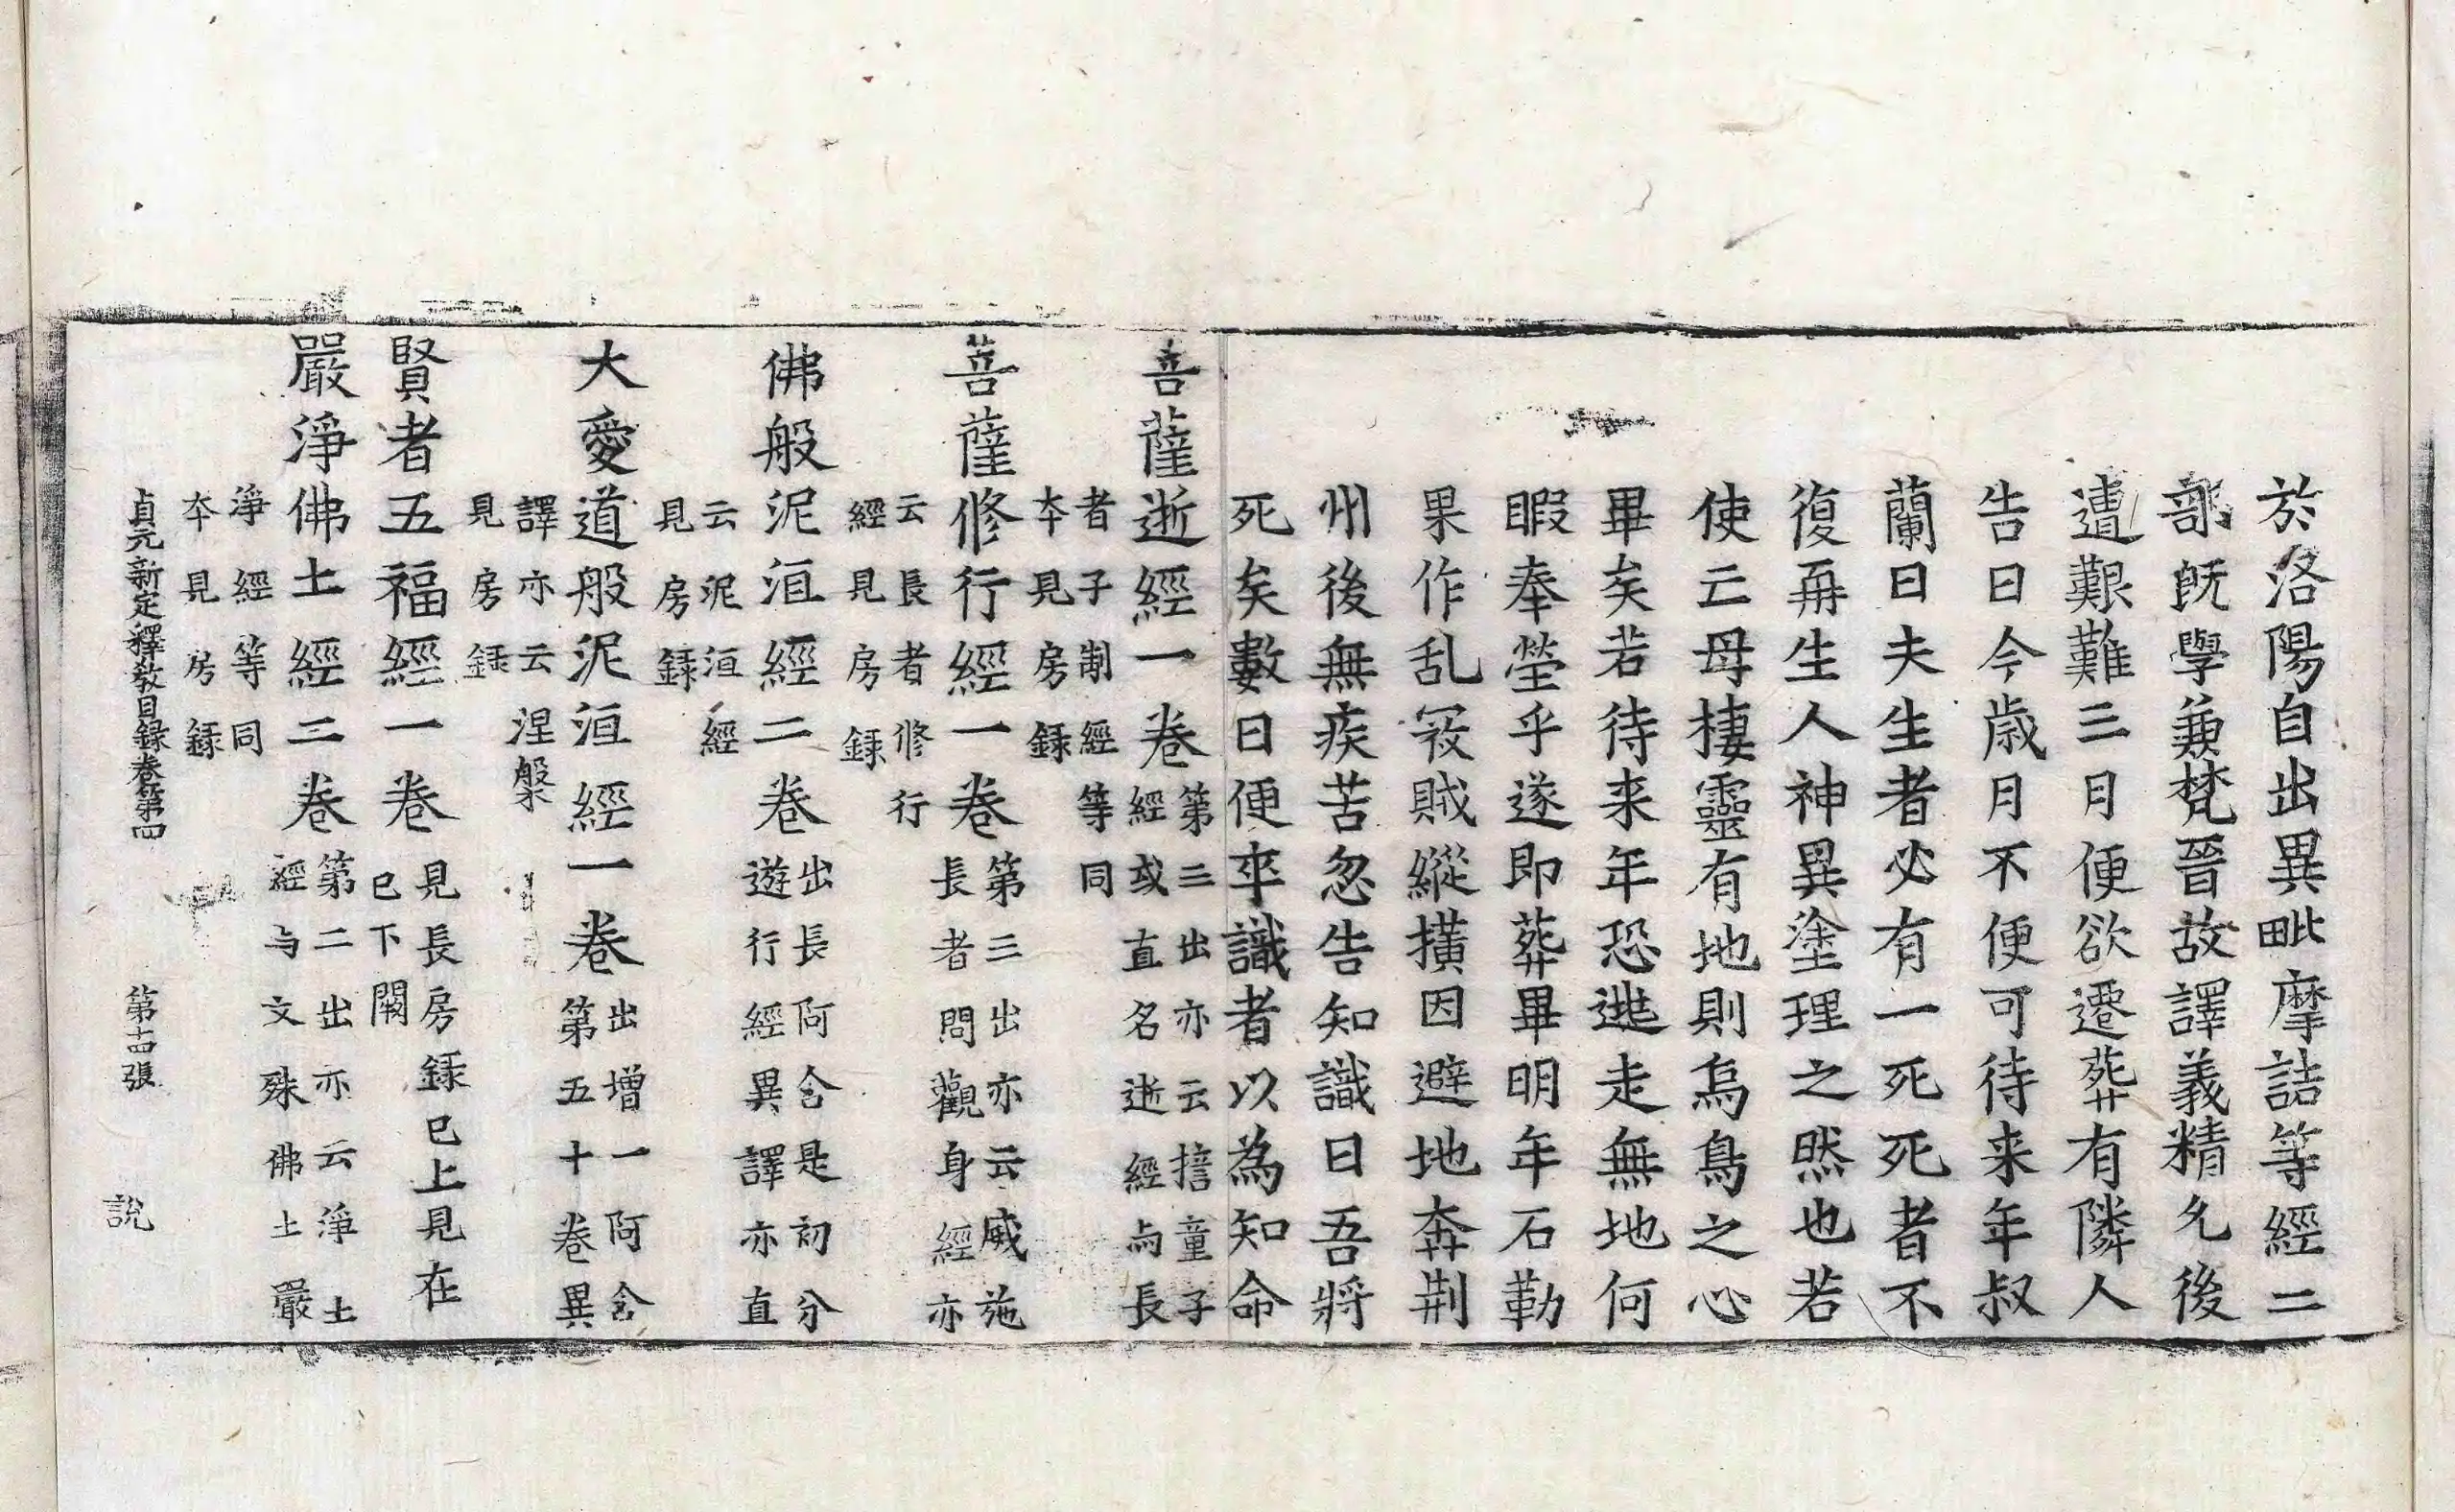 於洛陽自出異毗摩詰等經二
部旣學兼梵晉故譯義精允後
遭艱難三月便欲遷葬有隣人
告曰今歲月不便可待来年叔
蘭曰夫生者必有一死死者不
復再生人神異塗理之然也若
使云母棲靈有地則烏鳥之心
畢矣若待来年恐逃走無地何
暇奉塋乎遂即葬畢明年石勒
果作乱冦賊縱撗因避地奔荆
州後無疾苦忽告知識曰吾將
死矣數日便卒識者以為知命
菩薩逝經一卷
第三出亦云揞童子
經或直名逝經与長
者子制經等同
本見房錄
菩薩修行經一卷
第三出亦云威施
長者問觀身經亦
云長者修行
經見房錄
佛般泥洹經二卷
出長阿含是初分
遊行經異譯亦直
云泥洹經
見房錄
大愛道般泥洹經一卷
出增一阿含
第五十卷異
譯亦云涅槃
見房錄
賢者五福經一卷
見長房錄已上見在
已下闕
嚴淨佛土經二卷
第二出亦云淨土
經与文殊佛土嚴
淨經等同
本見房錄
貞元新定釋教目録卷第四 第十四張 說